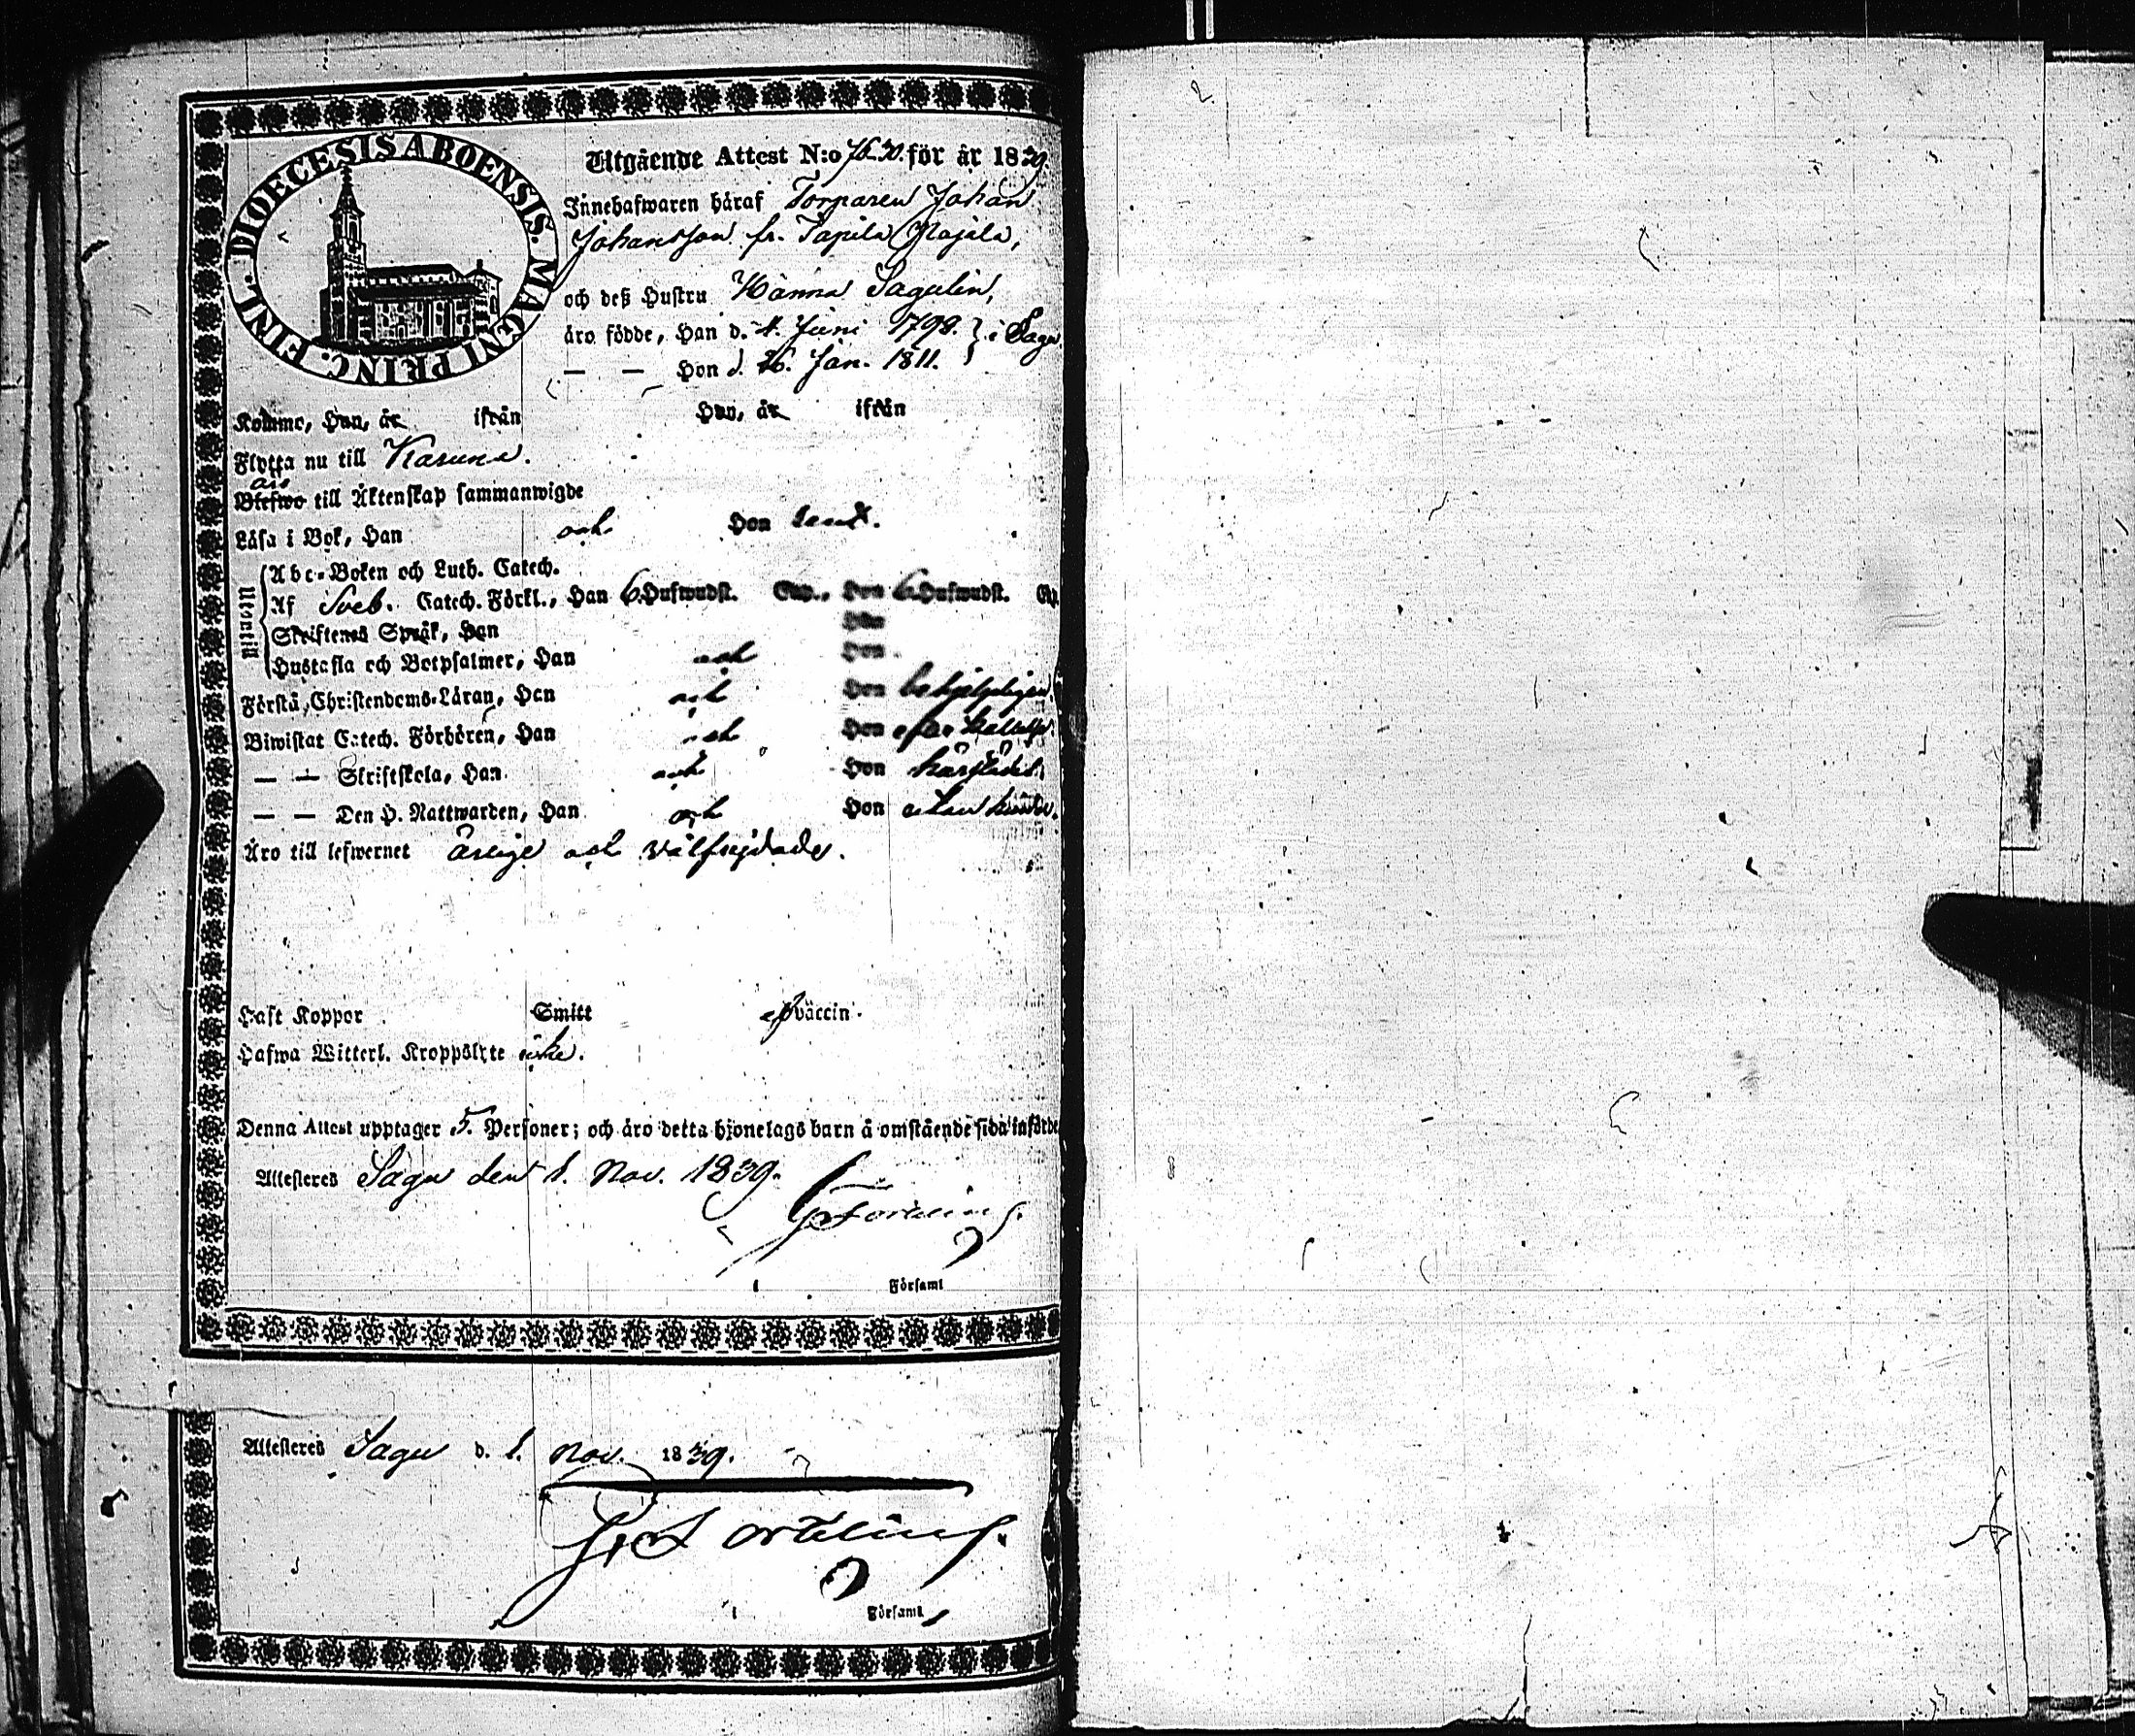 DIOECESIS ABOENSIS. MAGNI PRINC. FINL.
Utgående Attest N:o för år 1839.
Innehafwaren häraf Torparen Johan
Johansson fr. Tapila Majala,
och deß Hustru Hanna Sagulin,
äro födde, Han d. 4. Juni 1798. } i Sagu
— — Hon d. 26. Jan. 1811.
Komme, Han, år ifrån Hon, år ifrån
Flytta nu till Karuna.
äro
Blefwo till Äktenskap sammanwigde
Läsa i Bok, Han och Hon
Utantill
Abc-Boken och Luth. Catech.
Af Sveb. Catech. Förkl., Han 6. Hufwudst. Cap., Hon 6. Hufwudst. Cap.
Skriftenes Språk, Han Hon
Hustafla och Botpsalmer, Han och Hon
Förstå Christendoms-Läran, Han och Hon
Biwistat Catech. Förhören, Han och Hon
— — Skriftskola, Han och Hon
— — Den H. Nattwarden, Han och Hon
Äro till lefwernet ärlige och välfrejdade.
Haft Koppor Smitt Vaccin.
Hafwa Witterl. Kroppslyte icke.
Denna Attest upptager 5. Personer; och äro detta hjonelags barn å omstående sida införde
Attesteras Sagu den 1. Nov. 1839.
i Församl
Attesteras Sagu d. 1. Nov. 1839.
i Församl.